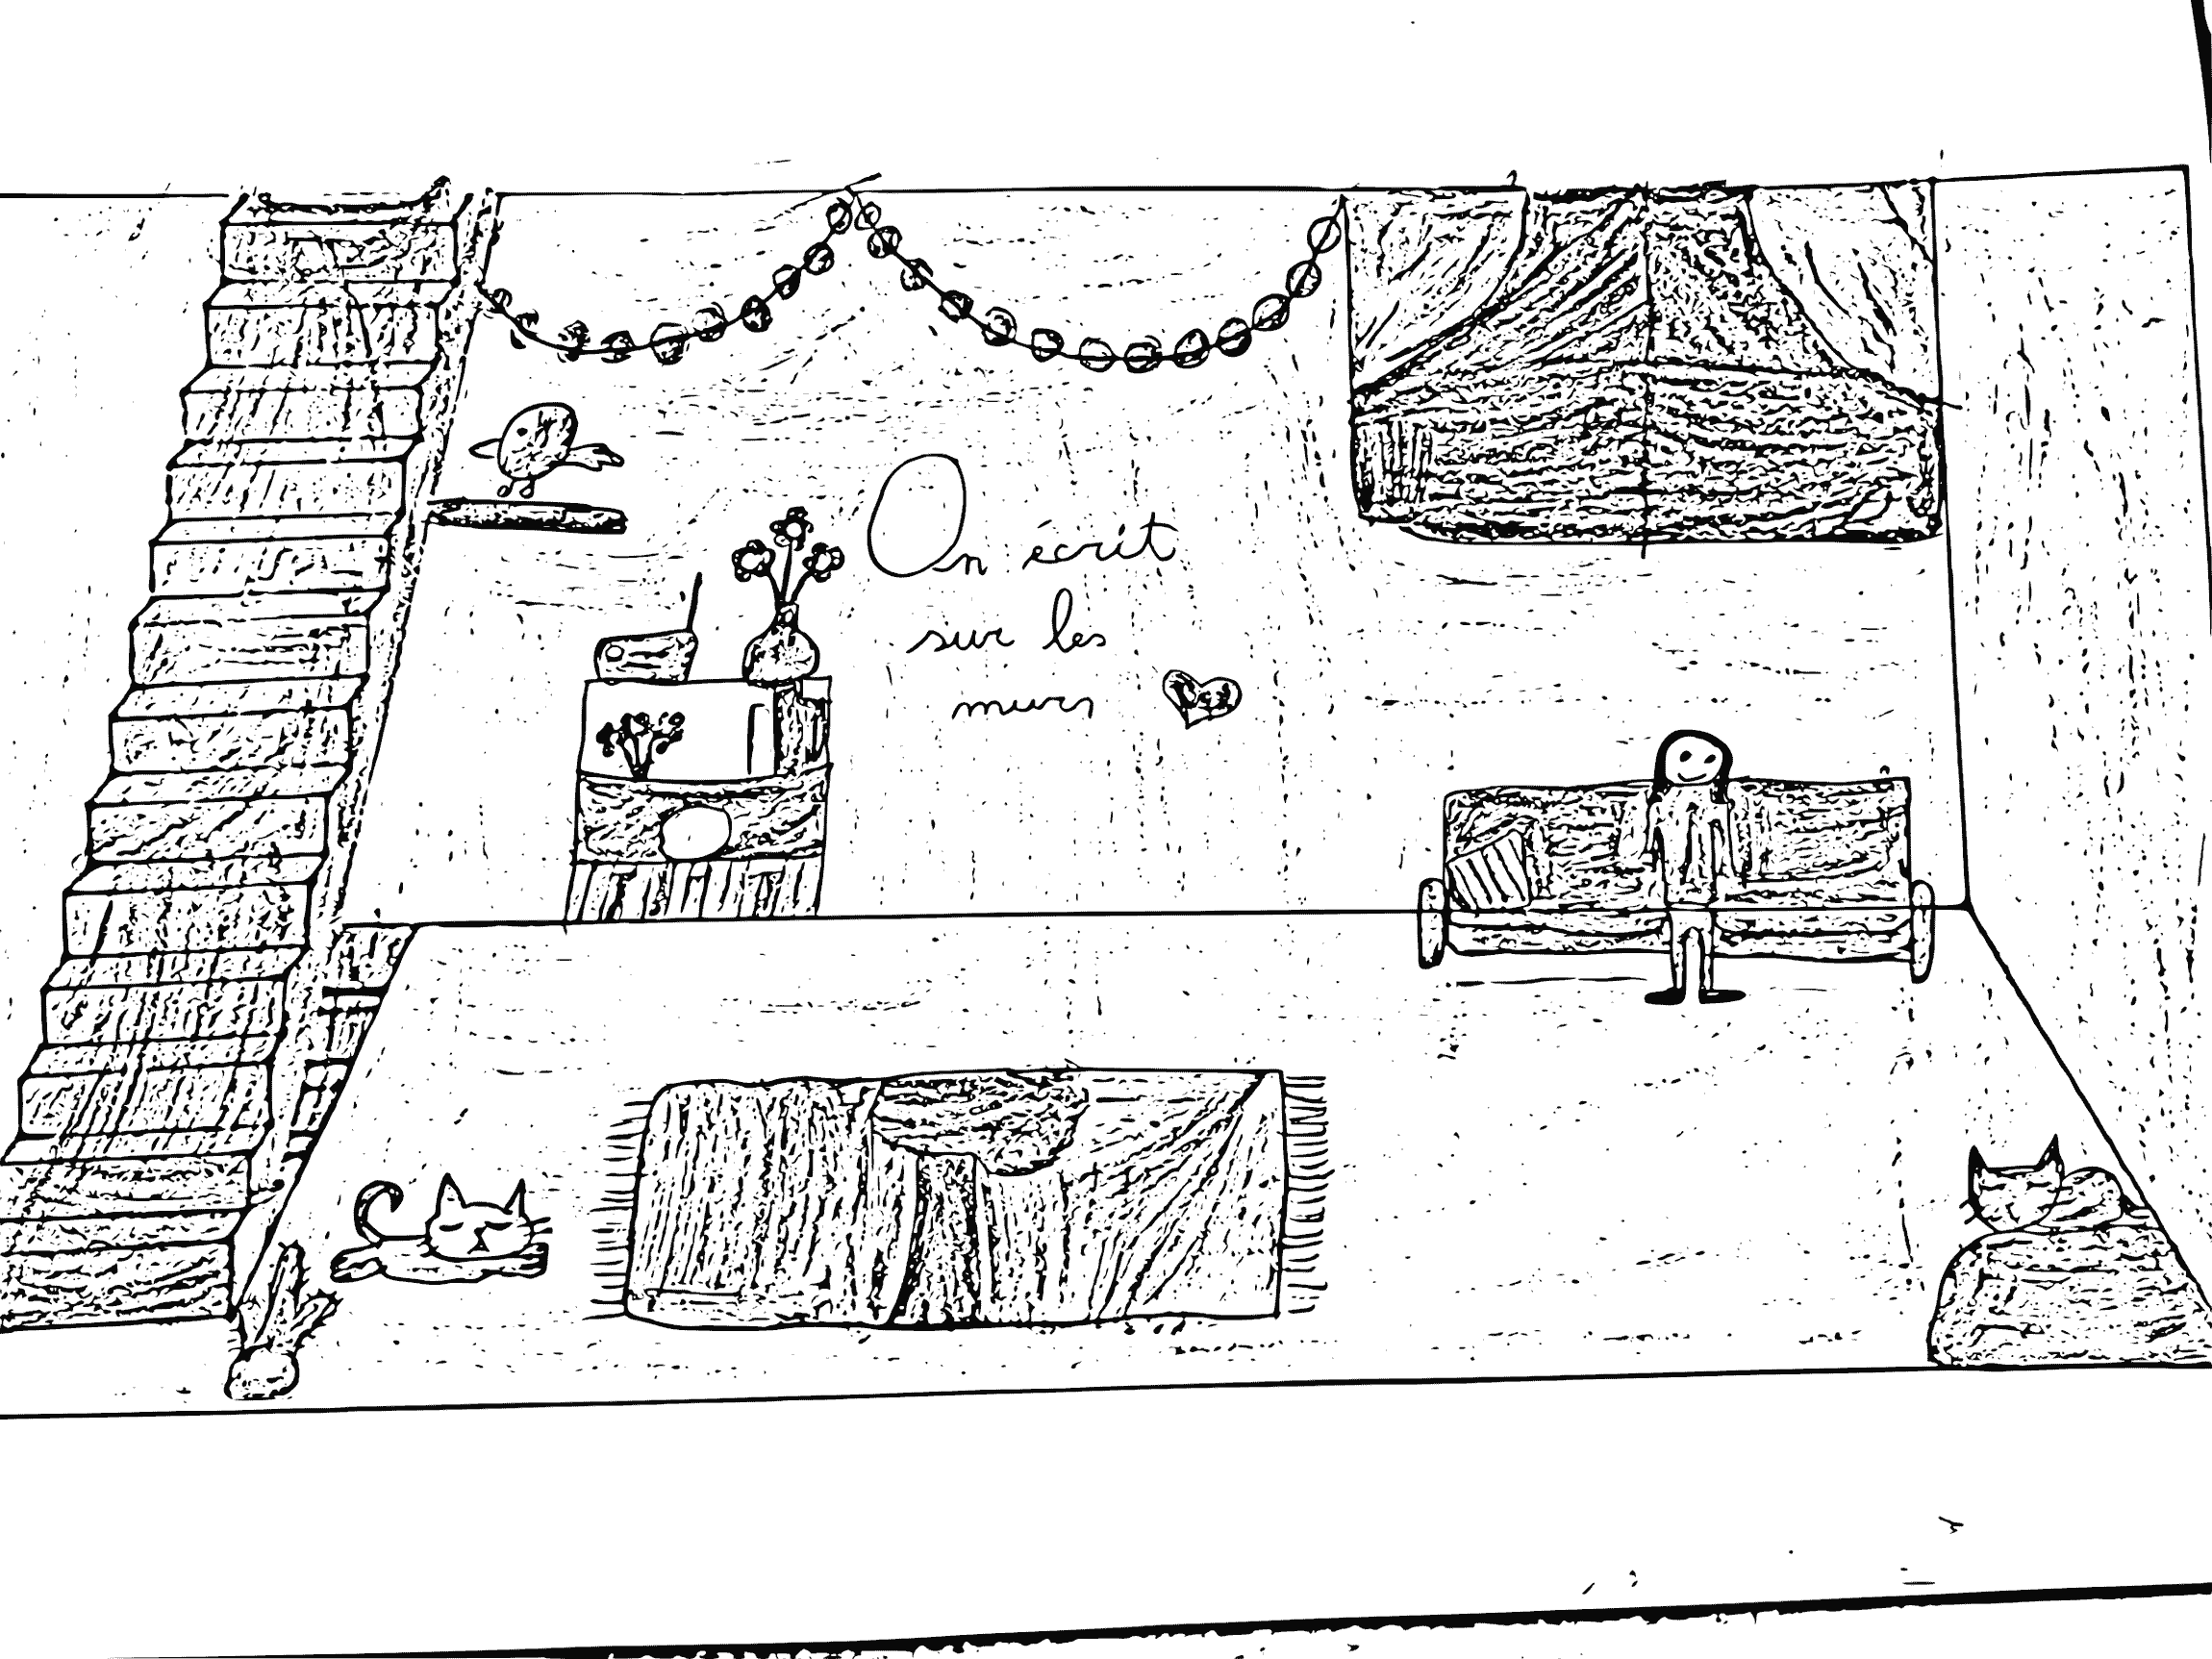 On écrit
sur les
murs